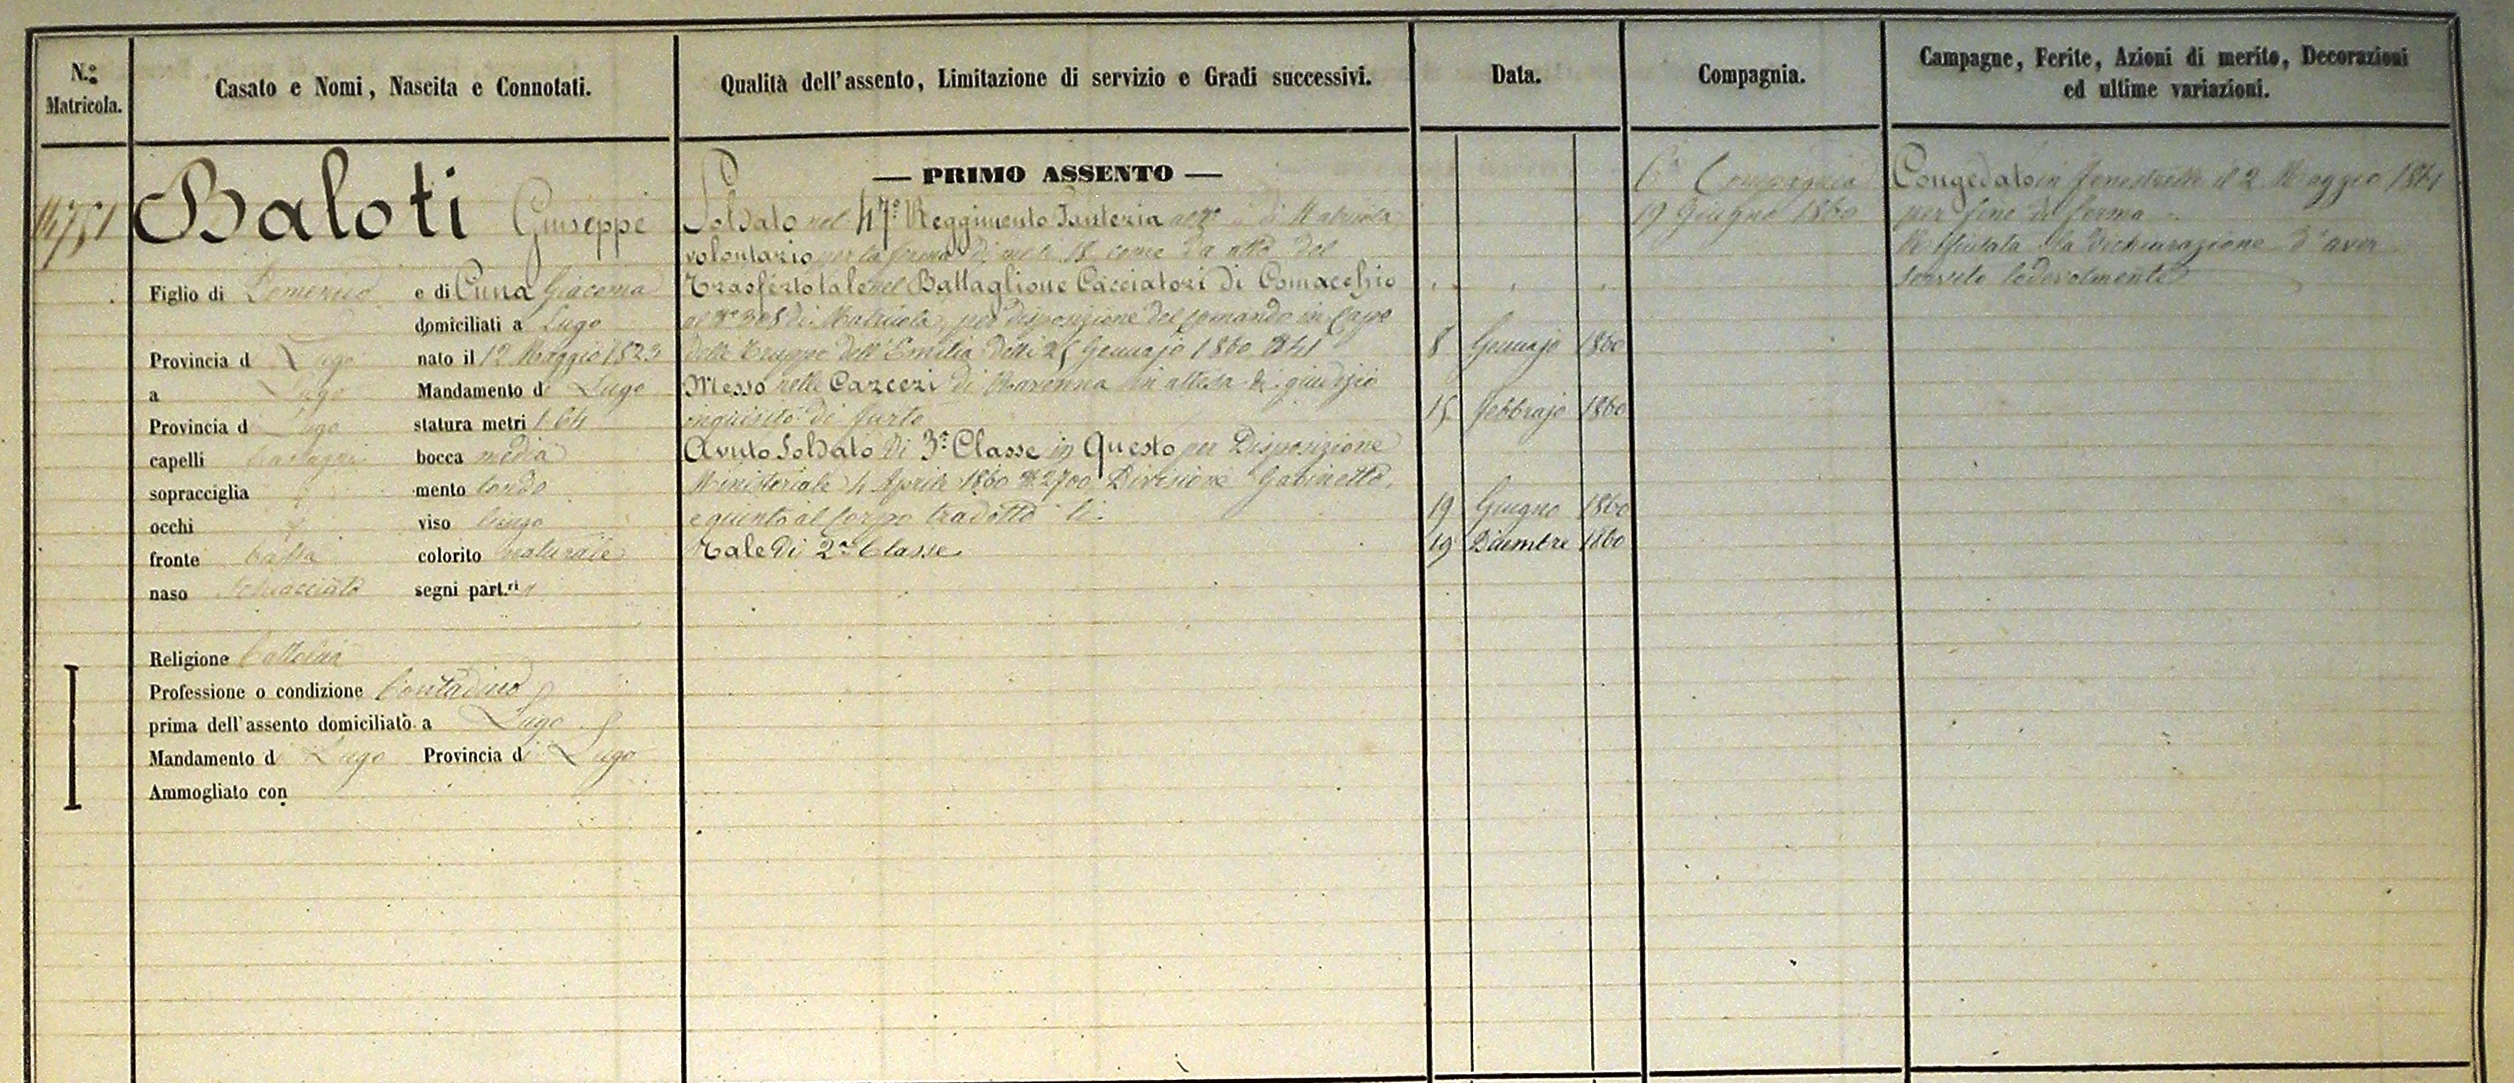 N.º Matricola.
Casato e Nomi, Nascita e Connotati.
Qualità dell'assento, Limitazione di servizio e Gradi successivi.
Data.
Compagnia.
Campagne, Ferite, Azioni di merito, Decorazioni
ed ultime variazioni.
14751
Baloti Giuseppe
Figlio di Domenico e di Cuna Giacoma
domiciliati a Lugo
Provincia d Lugo nato il 12 Maggio 1823
a Lugo Mandamento di Lugo
Provincia d Lugo statura metri 1.64
capelli castagni bocca media
sopracciglia mento tondo
occhi viso lungo
fronte bassa colorito naturale
naso schiacciato segni part.ri
Religione Cattolica
Professione o condizione Contadino
prima dell'assento domiciliato a Lugo
Mandamento di Lugo Provincia di Lugo
Ammogliato con
— PRIMO ASSENTO —
Soldato nel 47º Reggimento Fanteria al Nº di Matricola
volontario per la ferma di mesi 18 come da atto del
Trasferto tale nel Battaglione Cacciatori di Comacchio
al Nº 305 di Matricola, per disposizione del Comando in Capo
delle Truppe dell'Emilia Gennajo 1860 8 Gennajo 1860
Messo nelle Carceri di Ravenna in attesa di giudizio
inquisito di furto 15 Febbrajo 1860
Avuto Soldato di 3ª Classe in Questo per Disposizione
Ministeriale 4 Aprile 1860 Nº 2700 Divisione Gabinetto,
e giunto al Corpo tradotto li 19 Giugno 1860
Tale di 2ª Classe 19 Dicembre 1860
Compagnia
19 Giugno 1860
Congedato in Fenestrelle il 2 Maggio 1861
per fine di ferma
Rifiutata la dichiarazione d'aver
servito lodevolmente